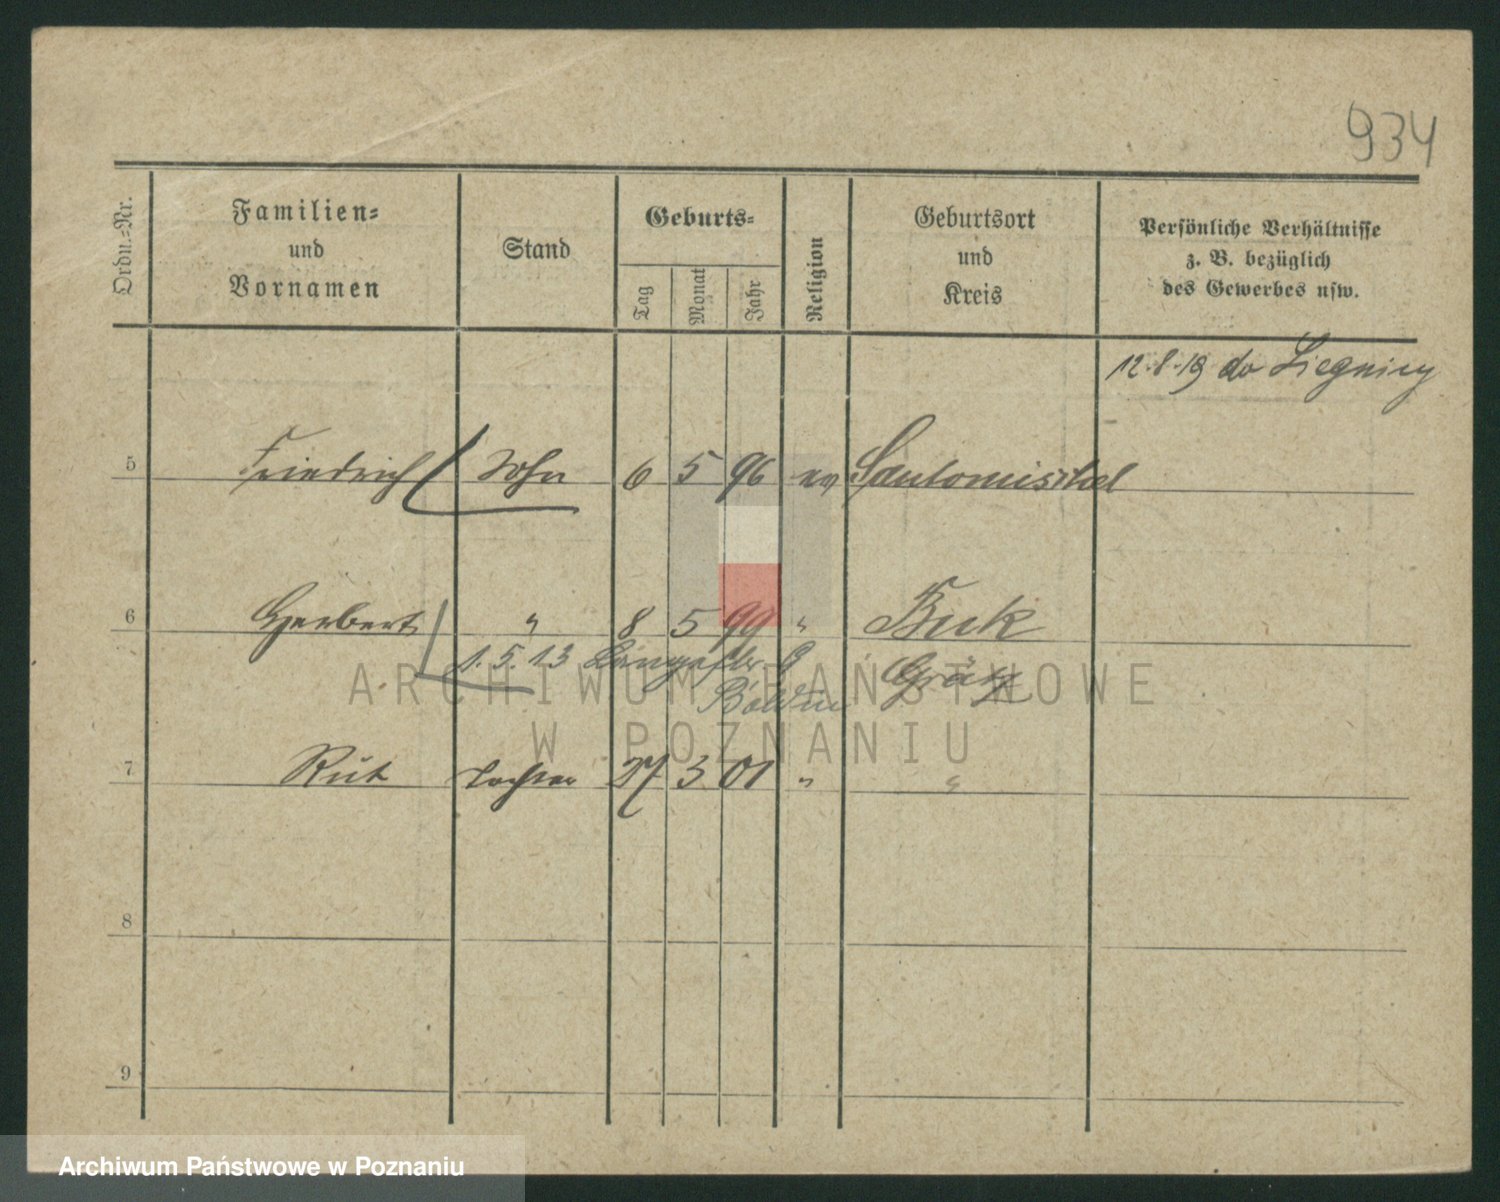 934
Ordn.-Nr.
Familien-
und
Vornamen
Stand
Geburts-
Tag
Monat
Jahr
Religion
Geburtsort
und
Kreis
Persönliche Verhältnisse
z. B. bezüglich
des Gewerbes usw.
12.8.19 do Liegnicy
5 Friedrich Sohn 6 5 96 ev Santomischel
6 Herbert " 8 5 99 " Buk
1.5.13 Grätz
7 Rut Tochter 27 3 01 " "
8
9
ARCHIWUM PAŃSTWOWE
W POZNANIU
Archiwum Państwowe w Poznaniu